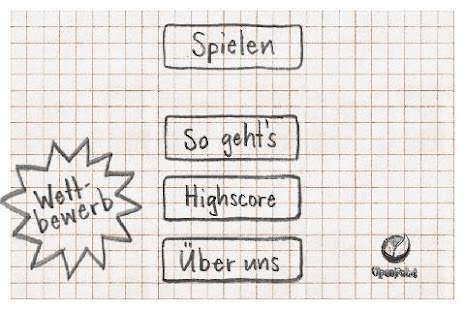 Spielen
So geht's
Highscore
Über uns
Wett-
bewerb